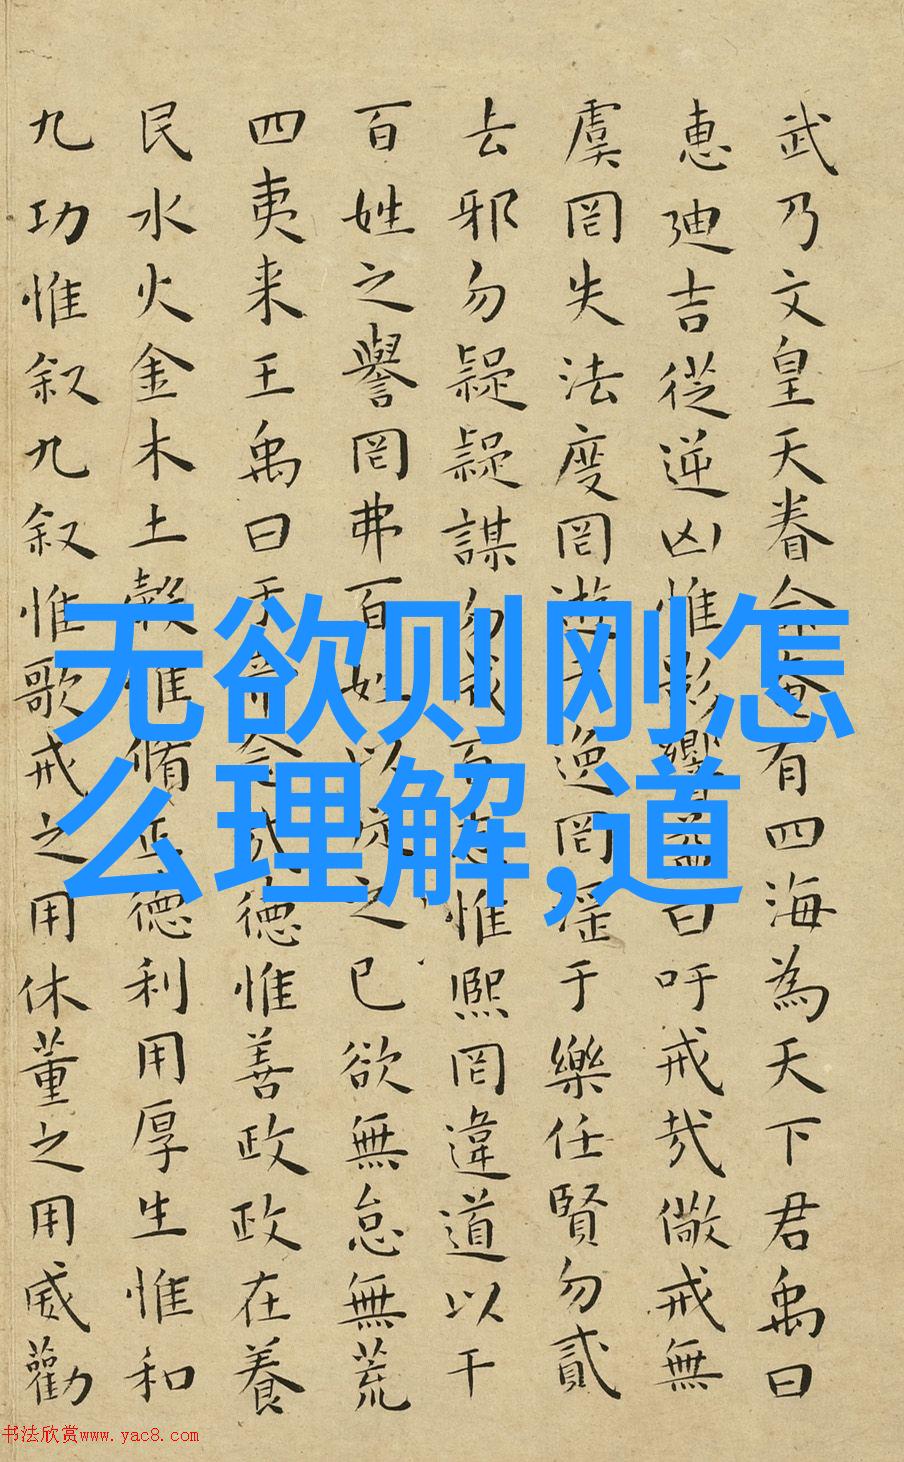 武乃文皇天眷命奄有四海為天下君禹曰
惠迪吉從逆凶惟影響益曰吁戒哉儆戒無
虞罔失法度罔遊于逸罔淫于樂任賢勿貳
去邪勿疑疑謀勿成百志惟熙罔違道以干
百姓之譽罔弗百姓以從之已欲無怠無荒
四夷来王禹曰於帝念哉德惟善政政在養
民水火金木土穀惟脩正德利用厚生惟和
九功惟叙九叙惟歌戒之用休董之用威勸
无欲则刚怎
么理解,道
书法欣赏www.yac8.com